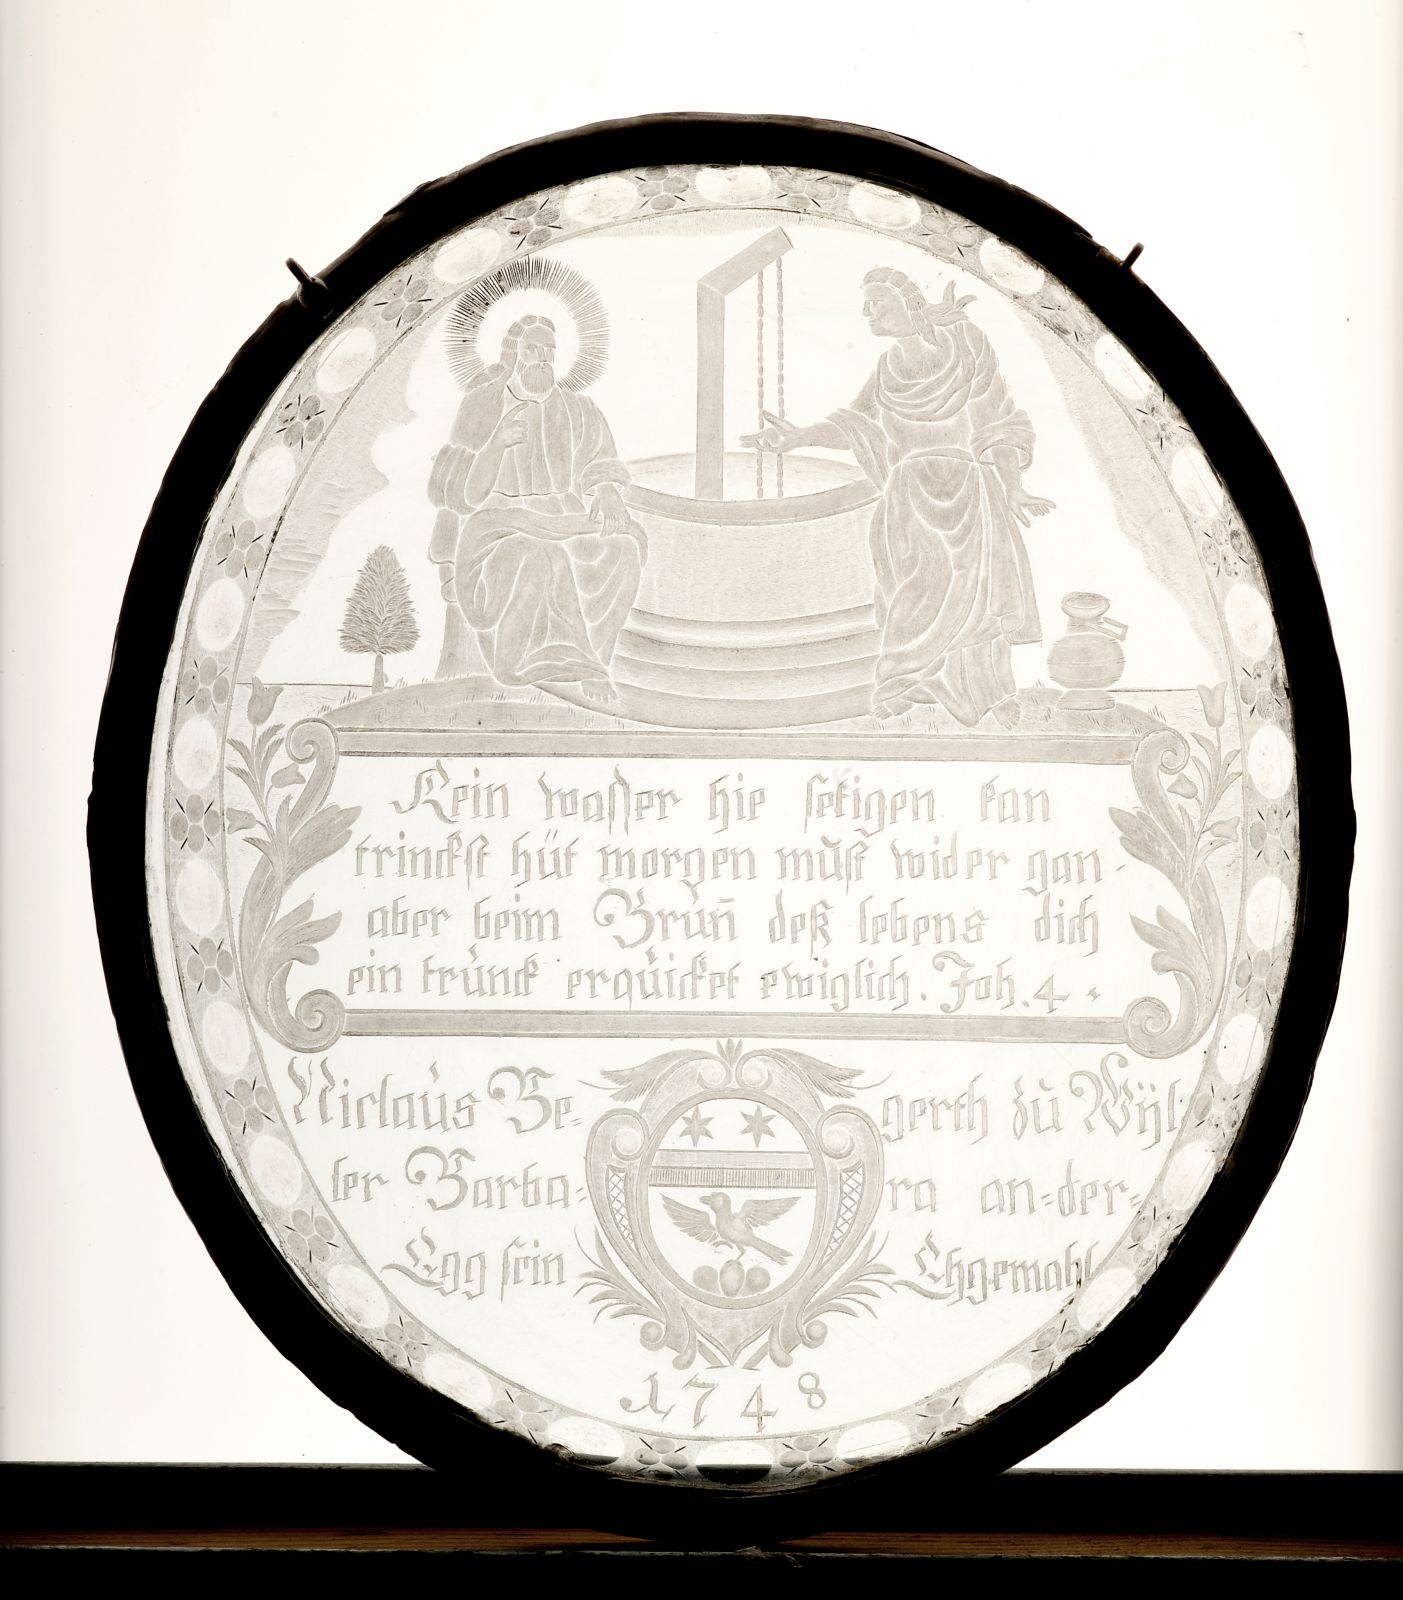 Kein wasser hie setigen kan
trinckst hüt morgen můst wider gan-
aber beim Brůn̄ deß lebens dich
ein trůnck erqůicket ewiglich. Joh. 4.
Niclaůs Be= gerth zů Wÿl
ler Barba= ra an=der=
Egg sein Ehgemahl
1748